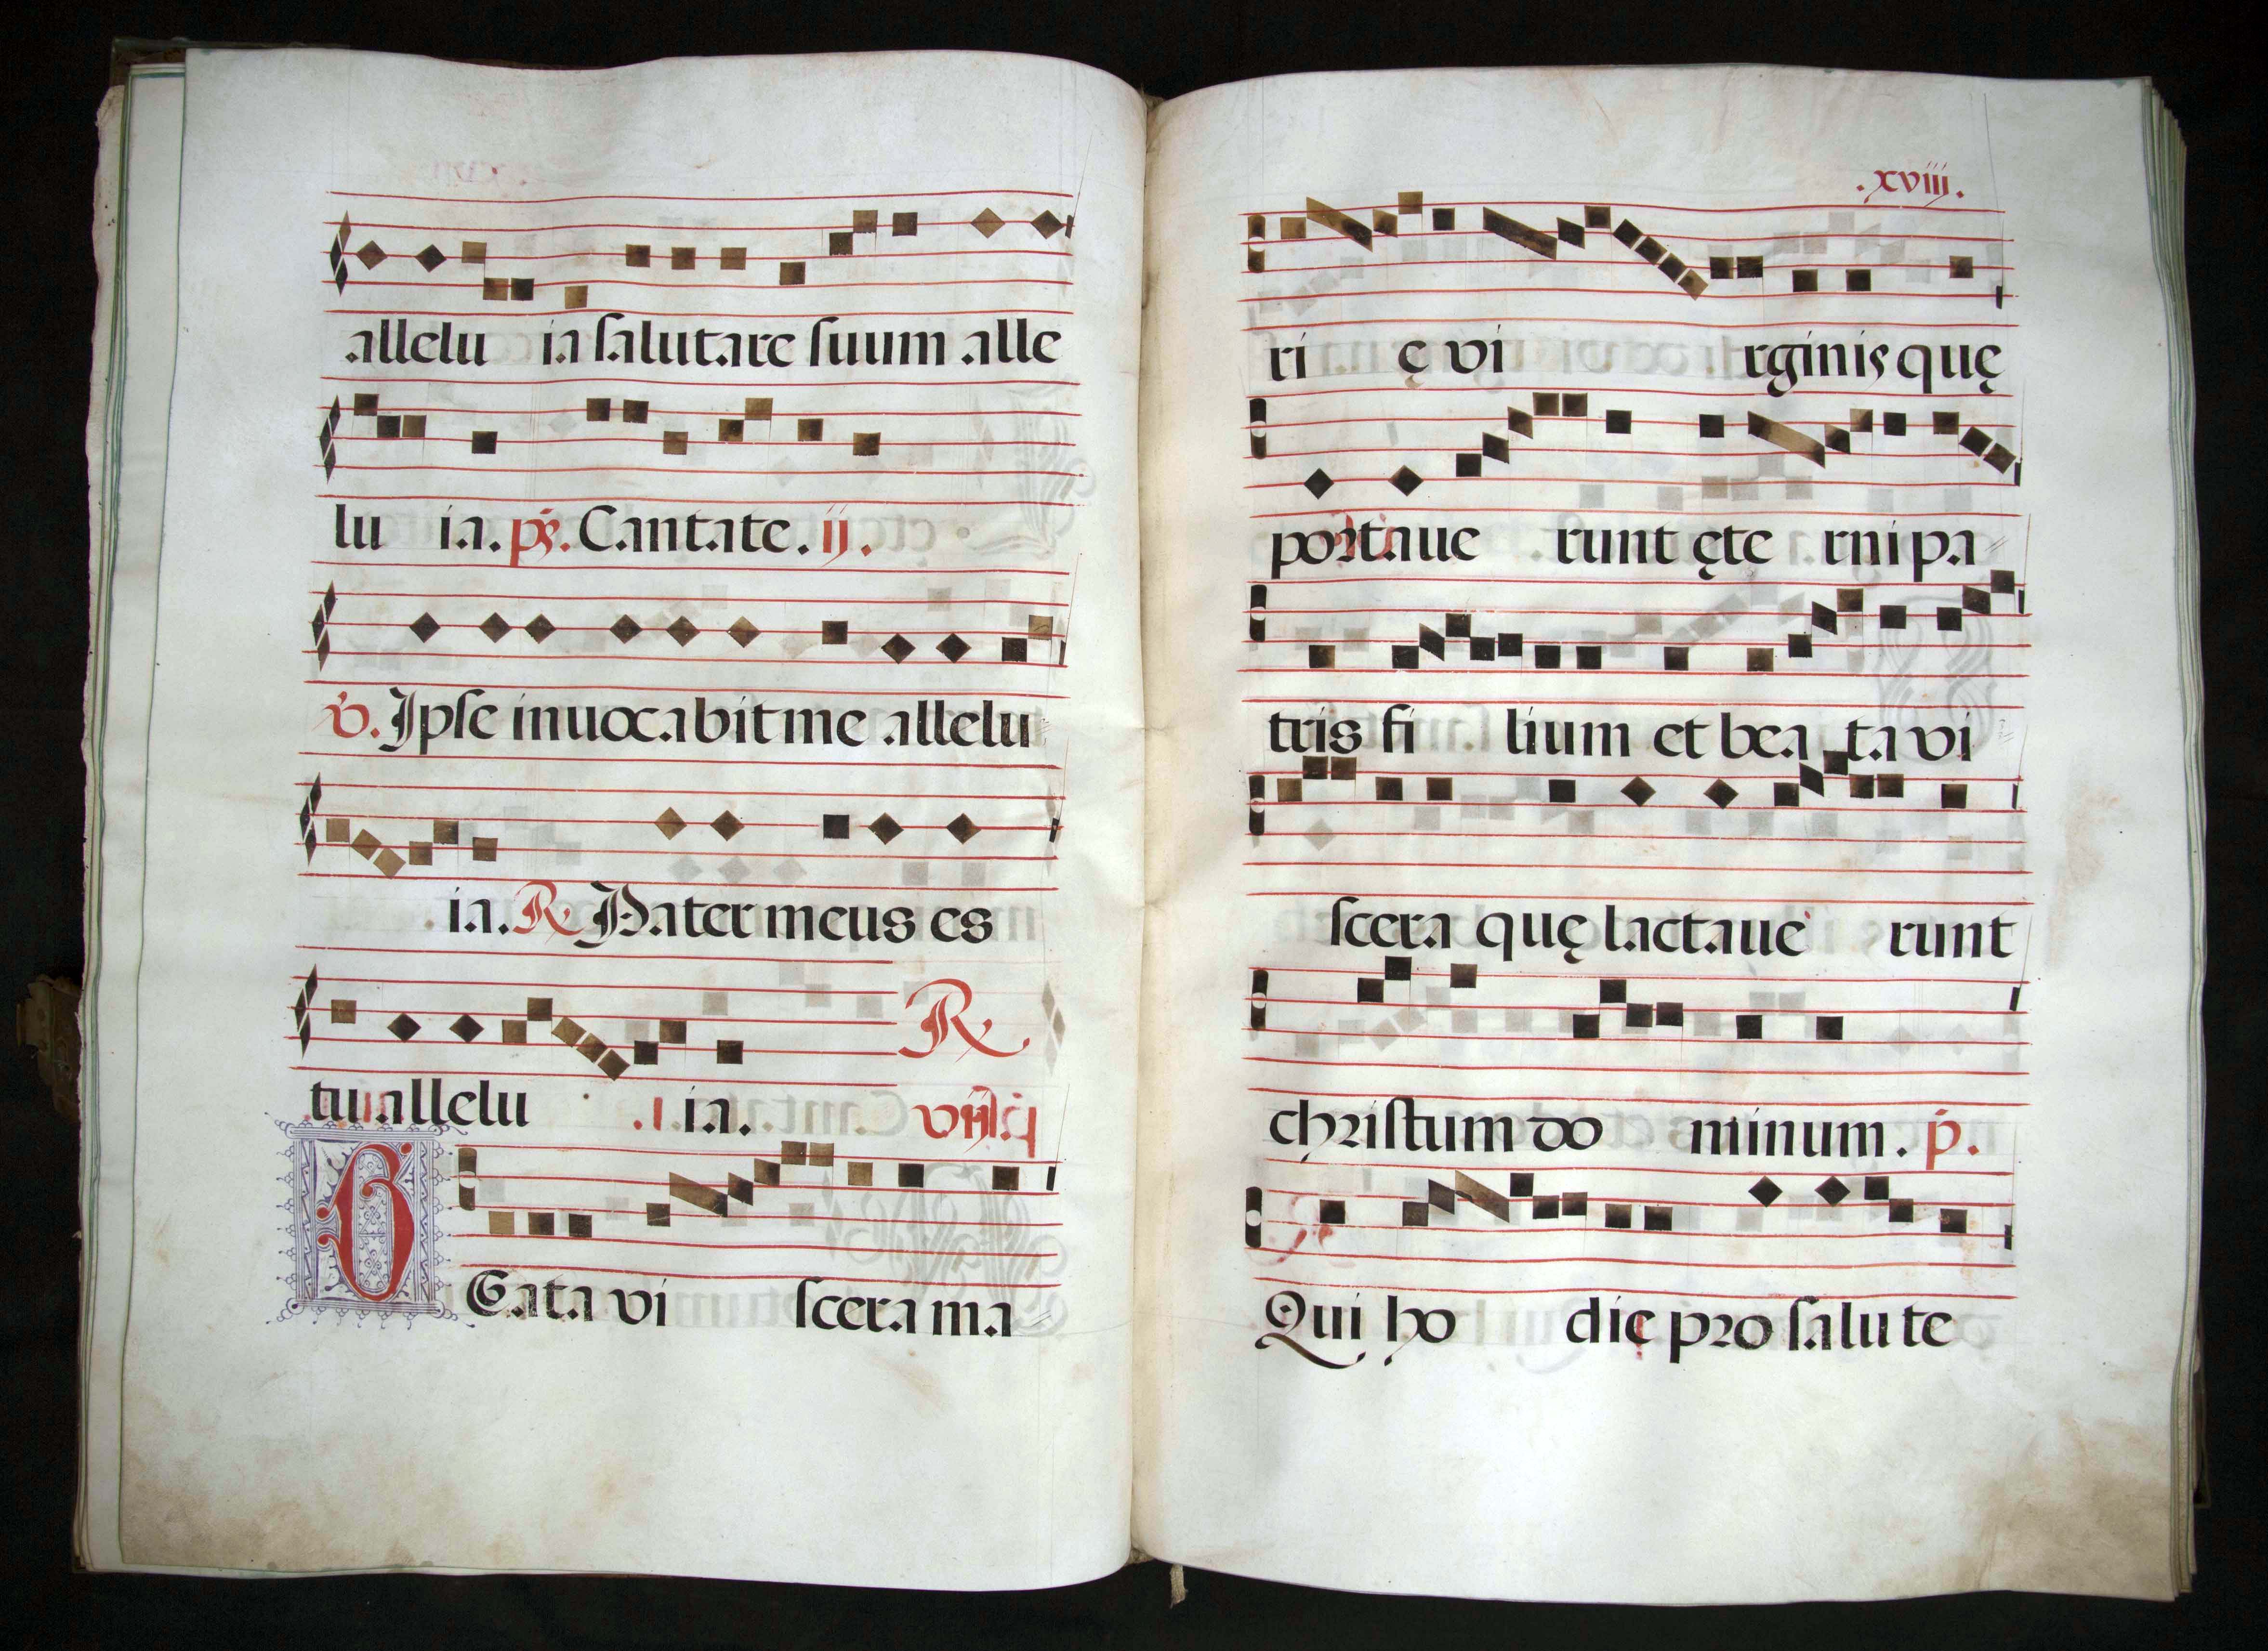 allelu ia salutare suum alle
lu ia. ps. Cantate. ij.
v. Ipse inuocabit me allelu
ia. R. Pater meus es
R
tu allelu ia. viij
B Eata vi scera ma
.xviij.
ri ę vi rginis quę
portaue runt ęte rni pa
tris fi lium et bea ta vi
scera quę lactaue runt
christum do minum. p.
Qui ho die pro salute